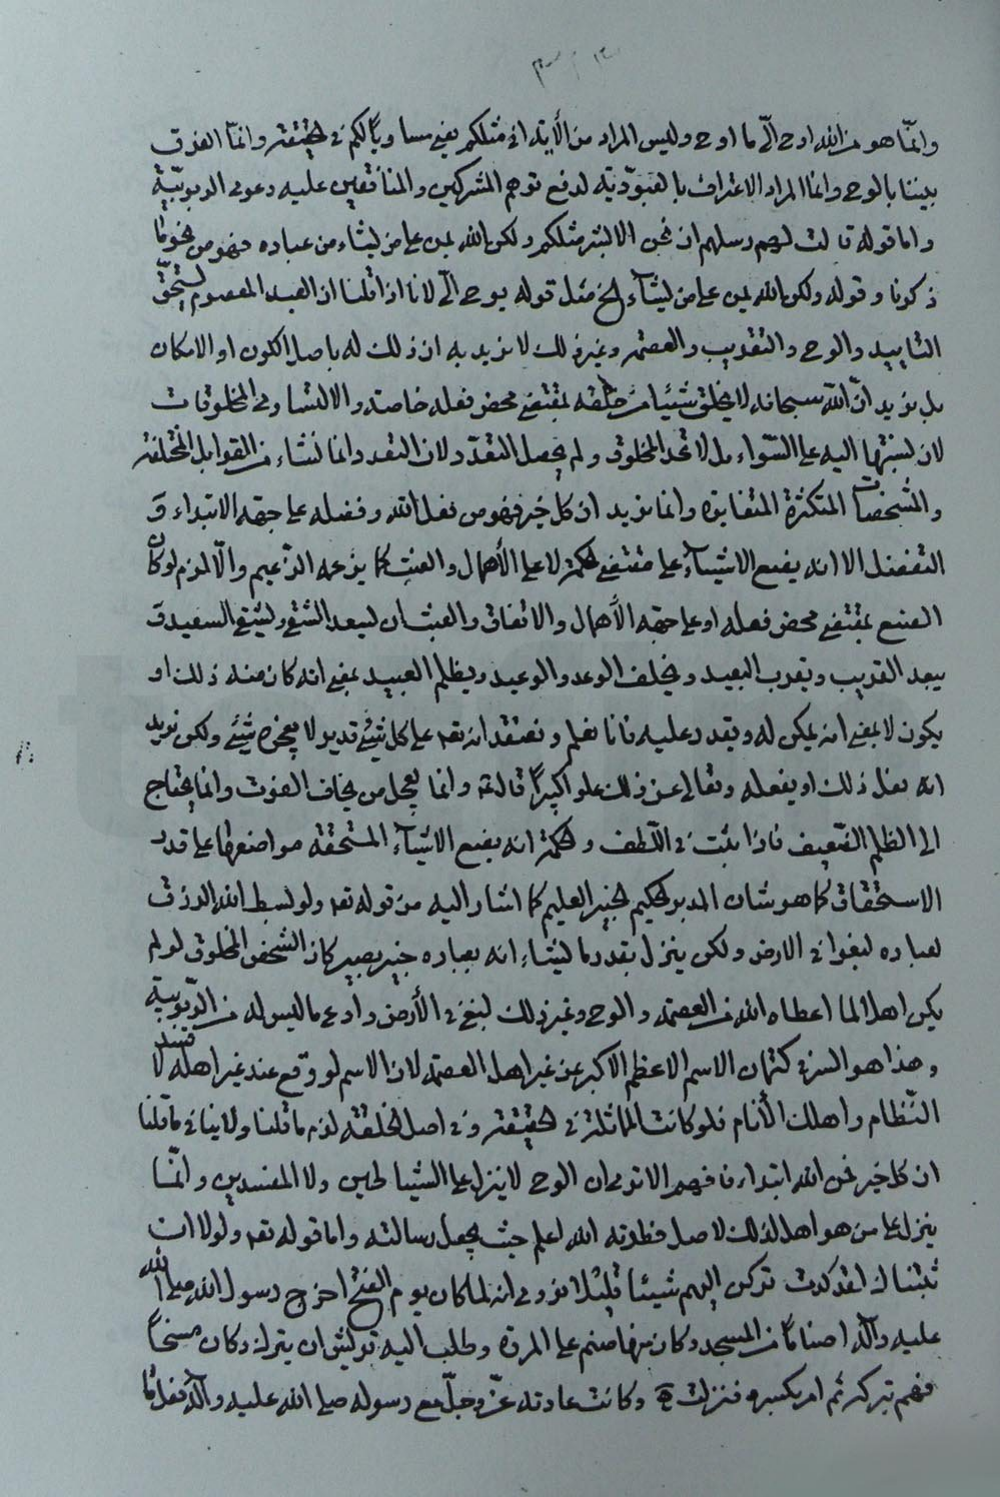 وانّما هو من الله اوحى الّى ما اوحى وليس المراد من الأية انى مثلكم يعنى مساويا لكم فى الحقيقة وانّما الفرق
بيننا بالوحى وانما المراد الاعتراف بالعبوديّة لدفع توهم المشركين والمنافقين عليه دعوى الربوبيّة
واما قوله قالت لهم رسلهم ان نحن الا بشر مثلكم ولكن الله يمن على من يشاء من عباده فهو من نحو ما
ذكرنا وقوله ولكن الله يمن على من يشآء الخ مثل قوله يوحى الّى لانا اذا قلنا ان العبد المعصوم يستحق
التاييد والوحى والتقريب والعصمة وغير ذلك لا نريد به ان ذلك له باصل الكون او الامكان
بل نريد انّ الله سبحانه لا يخلق شيئا من خلقه بمقتضى محض فعله خاصة والا لتساوى المخلوقات
لان نسبتها اليه على السّواء بل لا تحد المخلوق ولم يحصل التعدّد لان التعدد انما نشاء من القوابل المختلفة
والمشخصات المتكثرة المتغايرة وانما نريد ان كل خير فهو من فعل الله وفضله على جهة الابتداء و
التفضل الا انه يضع الاشيآء على مقتضى الحكمة لا على الأهمال والعبث كما يزعمه الزّعيم والّا لزم لو كان
الصنع بمقتضى محض فعله او على جهة الأهمال والاتفاق والعبث ان يسعد الشقى ويشقى السعيد و
يبعد القريب ويقرب البعيد ويخلف الوعد والوعيد ويظلم العبيد بمعنى انه كان منه ذلك او
يكون لا بمعنى انه يمكن له ويقدر عليه فانا نعلم ونعتقد انه تعه على كل شئ قدير لا يعجزه شئ ولكن نريد
انه فعل ذلك او يفعله وتعالى عن ذلك علوا كبيرًا قال تعه وانما يعجل من يخاف الفوت وانما يحتاج
الى الظلم الضّعيف فاذا ثبت فى اللّطف والحكمة انه يضع الاشيآء المتحققة مواضعها على قدر
الاستحقاق كما هو شان المدبر الحكيم الخبير العليم كما اشار اليه من قوله تعه ولو بسط الله الرزق
لعباده لبغوا فى الارض ولكن ينزل بقدر ما يشاء انه بعباده خبير بصير كان الشخص المخلوق لو لم
يكن اهلا لما اعطاه الله من العصمة والوحى وغير ذلك لبغى فى الأرض وادعى ما ليس له من الرّبوبية
وهذا هو السر فى كتمان الاسم الاعظم الاكبر عن غير اهل العصمة لان الاسم لو وقع عند غير اهله لافسد
النّظام واهلك الأنام فلو كانت المماثلة فى الحقيقة وفى اصل الخلقة لزم ما قلنا ولا ينافى ما قلنا
ان كل خير فمن الله ابتداء فافهم الا ترى ان الوحى لا ينزل على الشياطين ولا المفسدين وانّما
ينزل على من هو اهل لذلك لاصل فطرته الله اعلم حيث يجعل رسالته واما قوله تعه ولولا ان
ثبتناك لقد كدت تركن اليهم شيئا قليلا فروى انه لما كان يوم الفتح اخرج رسول الله صلى الله
عليه وآله اصناما من المسجد وكان منها صنم على المروة وطلب اليه قريش ان يتركه وكان مستحيا
فهم بتركه ثم امر بكسره فنزلت الآية وكانت عادته عزّ وجلّ مع رسوله صلى الله عليه وآله